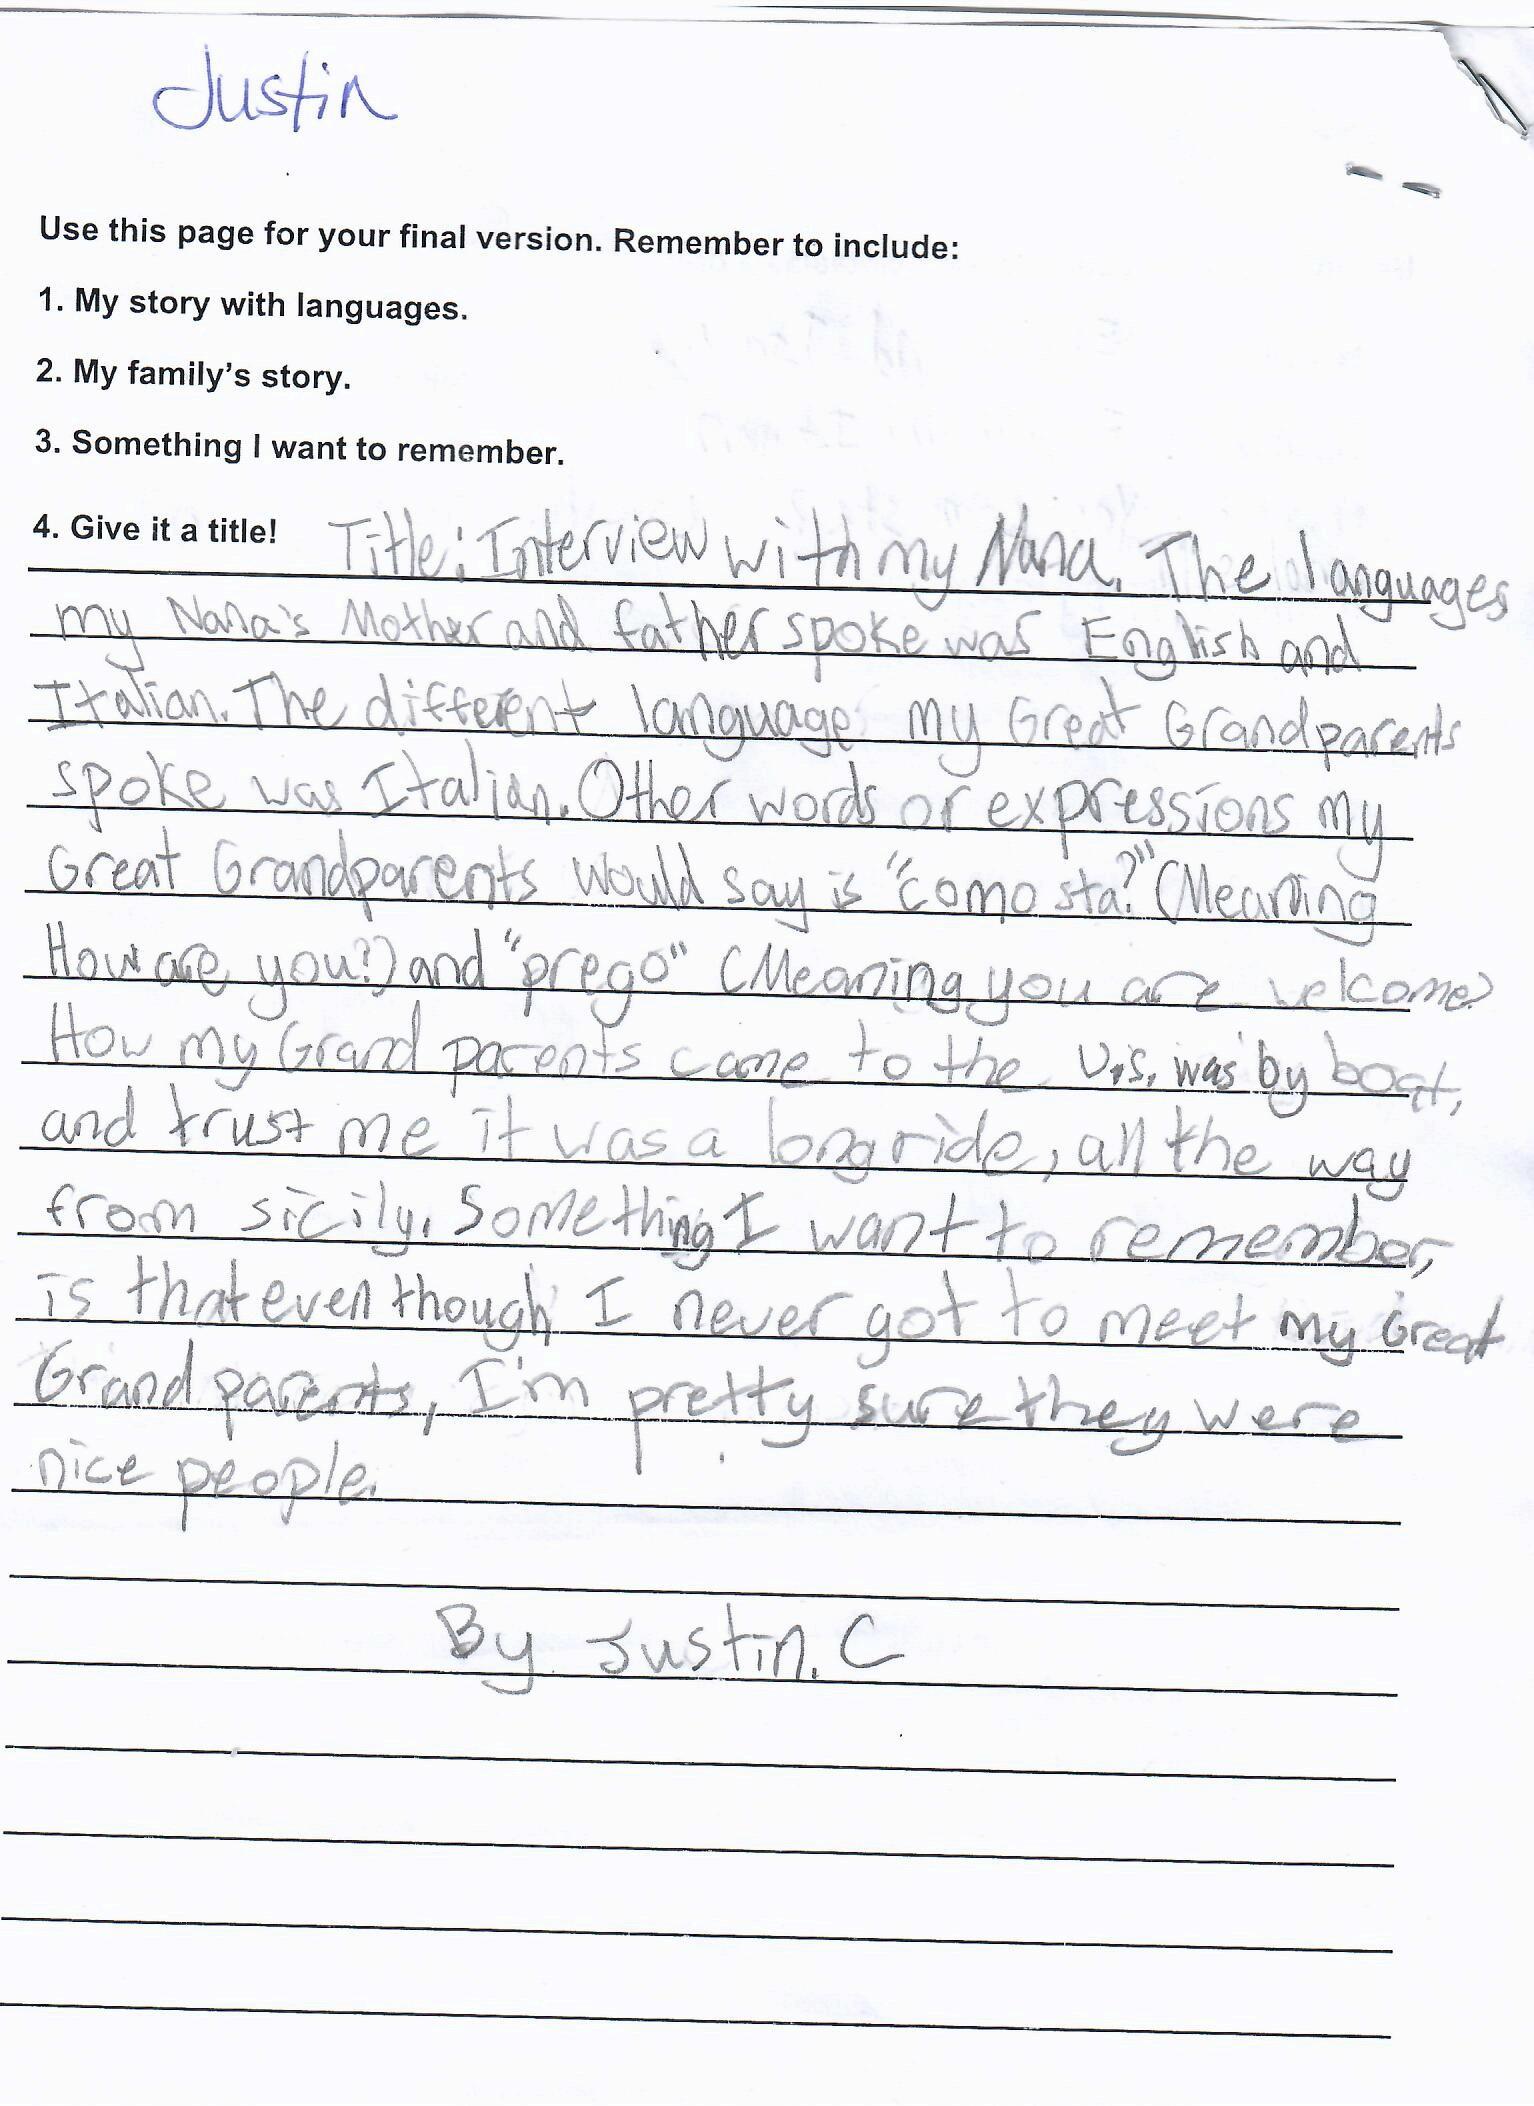 Justin
Use this page for your final version. Remember to include:
1. My story with languages.
2. My family's story.
3. Something I want to remember.
4. Give it a title! Title: Interview with my Nana. The languages
my Nana's Mother and father spoke was English and
Italian. The different language my Great Grandparents
spoke was Italian. Other words or expressions my
Great Grandparents would say is "como sta?" (Meaning
How are you?) and "prego" (Meaning you are welcome)
How my Grand parents came to the U.S. was by boat,
and trust me it was a long ride, all the way
from sicily. Something I want to remember,
is that even though I never got to meet my Great
Grand parents, I'm pretty sure they were
nice people.
By Justin. C